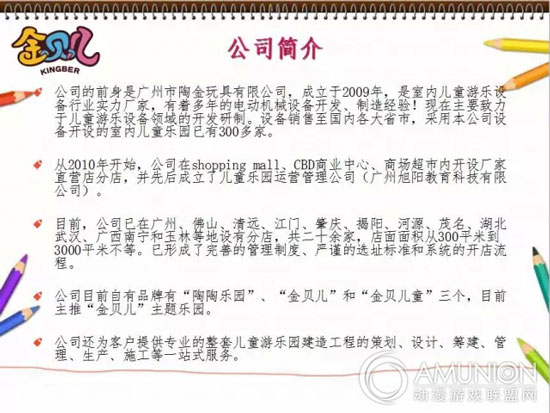 金贝儿
KINGBER
公司简介
公司的前身是广州市陶金玩具有限公司，成立于2009年，是室内儿童游乐设
备行业实力厂家，有着多年的电动机械设备开发、制造经验！现在主要致力
于儿童游乐设备领域的开发研制。设备销售至国内各大省市，采用本公司设
备开设的室内儿童乐园已有300多家。
从2010年开始，公司在shopping mall、CBD商业中心、商场超市内开设厂家
直营店分店，并先后成立了儿童乐园运营管理公司（广州旭阳教育科技有限
公司）。
目前，公司已在广州、佛山、清远、江门、肇庆、揭阳、河源、茂名、湖北
武汉、广西南宁和玉林等地设有分店，共二十余家，店面面积从300平米到
3000平米不等。已形成了完善的管理制度、严谨的选址标准和系统的开店流
程。
公司目前自有品牌有“陶陶乐园”、“金贝儿”和“金贝儿童”三个，目前
主推“金贝儿”主题乐园。
公司还为客户提供专业的整套儿童游乐园建造工程的策划、设计、筹建、管
理、生产、施工等一站式服务。
AMUNION
动漫游戏联盟网